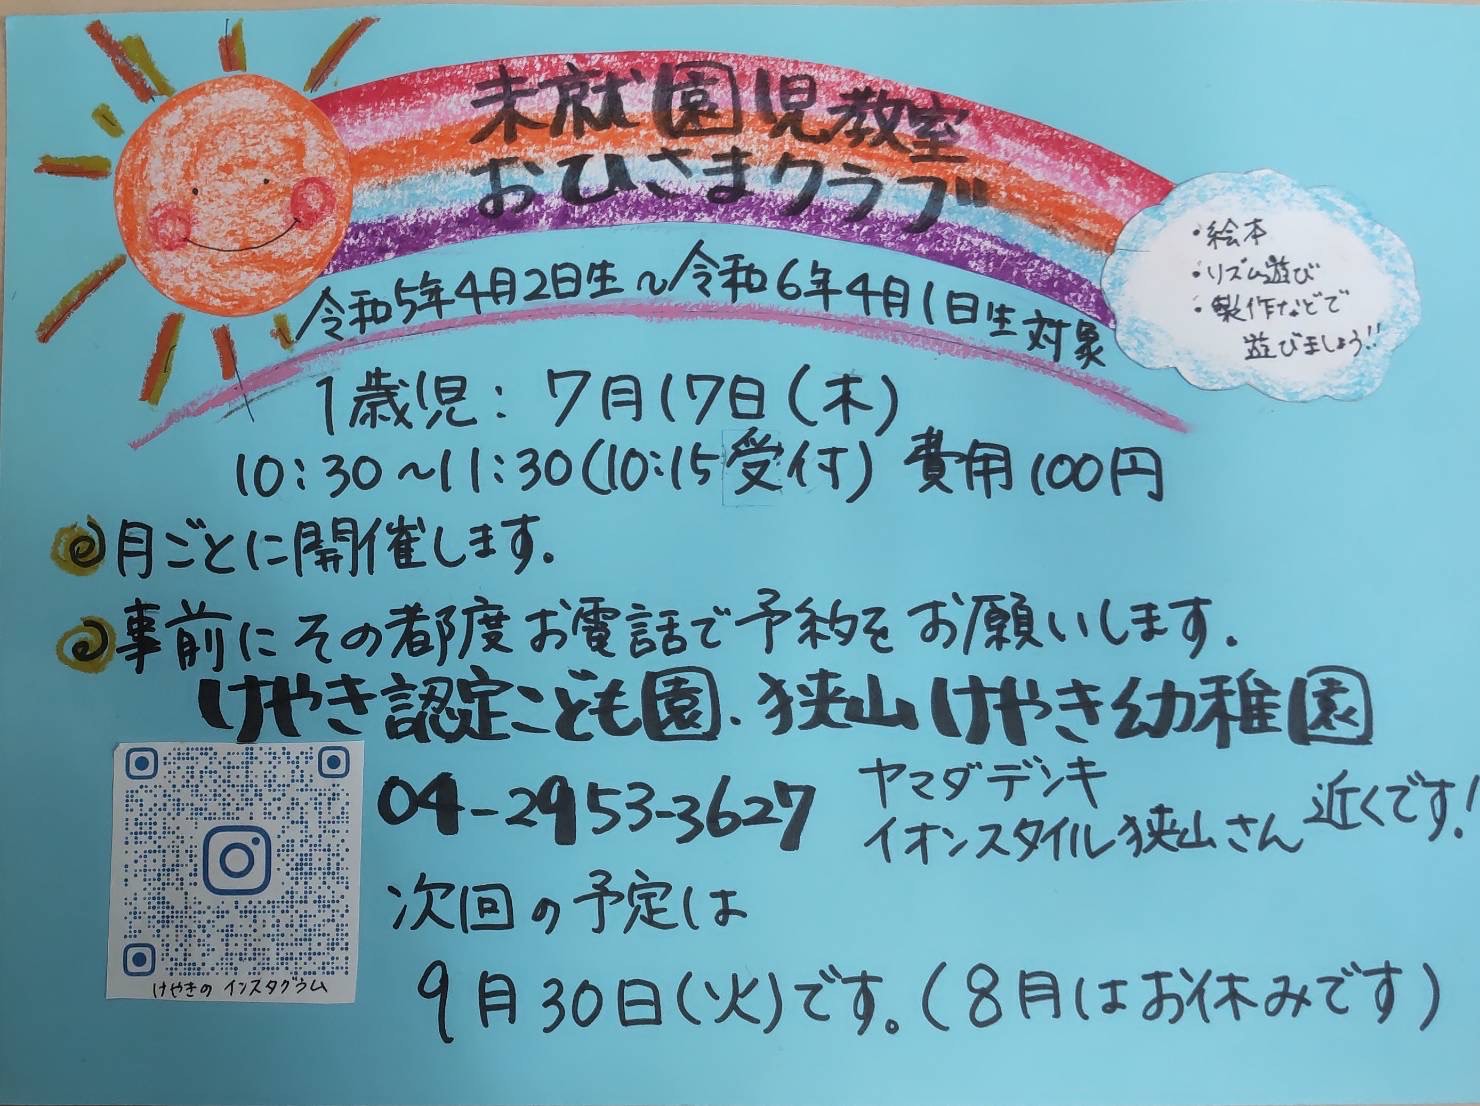 未就園児教室
おひさまクラブ
・絵本
・リズム遊び
・製作などで
遊びましょう!!
令和5年4月2日生～令和6年4月1日生対象
1歳児：7月17日(木)
10:30～11:30(10:15受付) 費用100円
月ごとに開催します。
事前にその都度お電話で予約をお願いします。
けやき認定こども園．狭山けやき幼稚園
04-2953-3627
ヤマダデンキ
イオンスタイル狭山さん 近くです!
次回の予定は
9月30日(火)です。(8月はお休みです)
けやきの インスタグラム